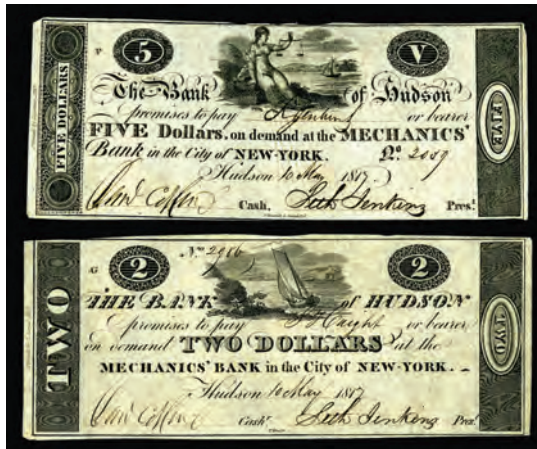 P 5 V
FIVE DOLLARS
The Bank of Hudson
promises to pay or bearer
FIVE Dollars, on demand at the MECHANICS'
Bank in the City of NEW-YORK. No 2059
Hudson 10 May 1817.
Cash, Seth Jenkins Pres.t
FIVE
G 2 No 2986 2
TWO
THE BANK of HUDSON
promises to pay or bearer
on demand TWO DOLLARS at the
MECHANICS' BANK in the City of NEW-YORK.
Hudson 10 May 1817
Cash.r Seth Jenkins Pres.t
TWO